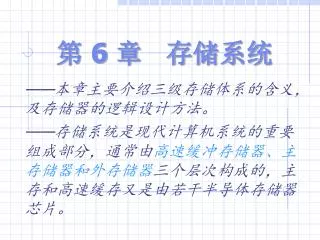 第 6 章 存储系统
——本章主要介绍三级存储体系的含义，
及存储器的逻辑设计方法。
——存储系统是现代计算机系统的重要
组成部分，通常由高速缓冲存储器、主
存储器和外存储器三个层次构成的，主
存和高速缓存又是由若干半导体存储器
芯片。